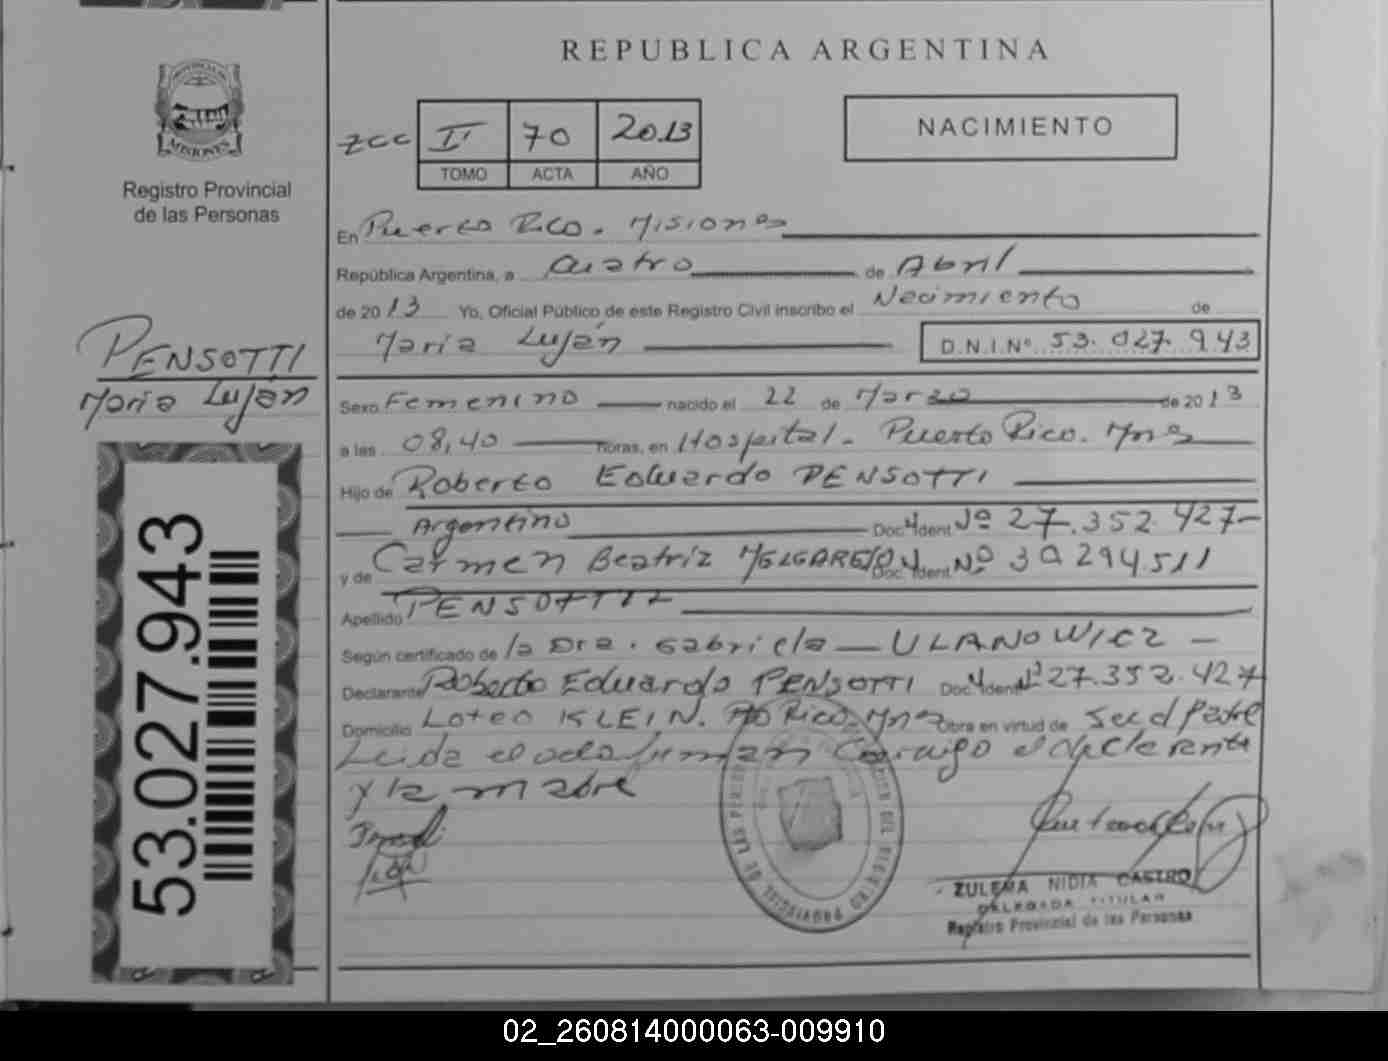 REPUBLICA ARGENTINA
PROVINCIA DE
MISIONES
Registro Provincial
de las Personas
zcc II 70 2013
TOMO ACTA AÑO
NACIMIENTO
En Puerto Rico. Misiones
República Argentina, a cuatro de Abril
de 2013 Yo, Oficial Público de este Registro Civil inscribo el Nacimiento de
Maria Luján D.N.I.Nº 53.027.943
PENSOTTI
Maria Luján
Sexo Femenino nacido el 22 de Marzo de 2013
a las 08,40 horas, en Hospital. Puerto Rico. Mnes
Hijo de Roberto Eduardo PENSOTTI
Argentino Doc. Ident. Nº 27.352.427
y de Carmen Beatriz MELGAREJO Doc. Ident. Nº 30.294.511
Apellido PENSOTTI
Según certificado de la Dra. Gabriela ULANOWICZ
Declarante Roberto Eduardo PENSOTTI Doc. Ident. Nº 27.352.427
Domicilio Loteo KLEIN. Pto Rico. Mnes Obra en virtud de ser el Padre
Leida el acta firman conmigo el declarante
y la madre
53.027.943
ZULEMA NIDIA CASTRO
DELEGADA TITULAR
Registro Provincial de las Personas
02_260814000063-009910